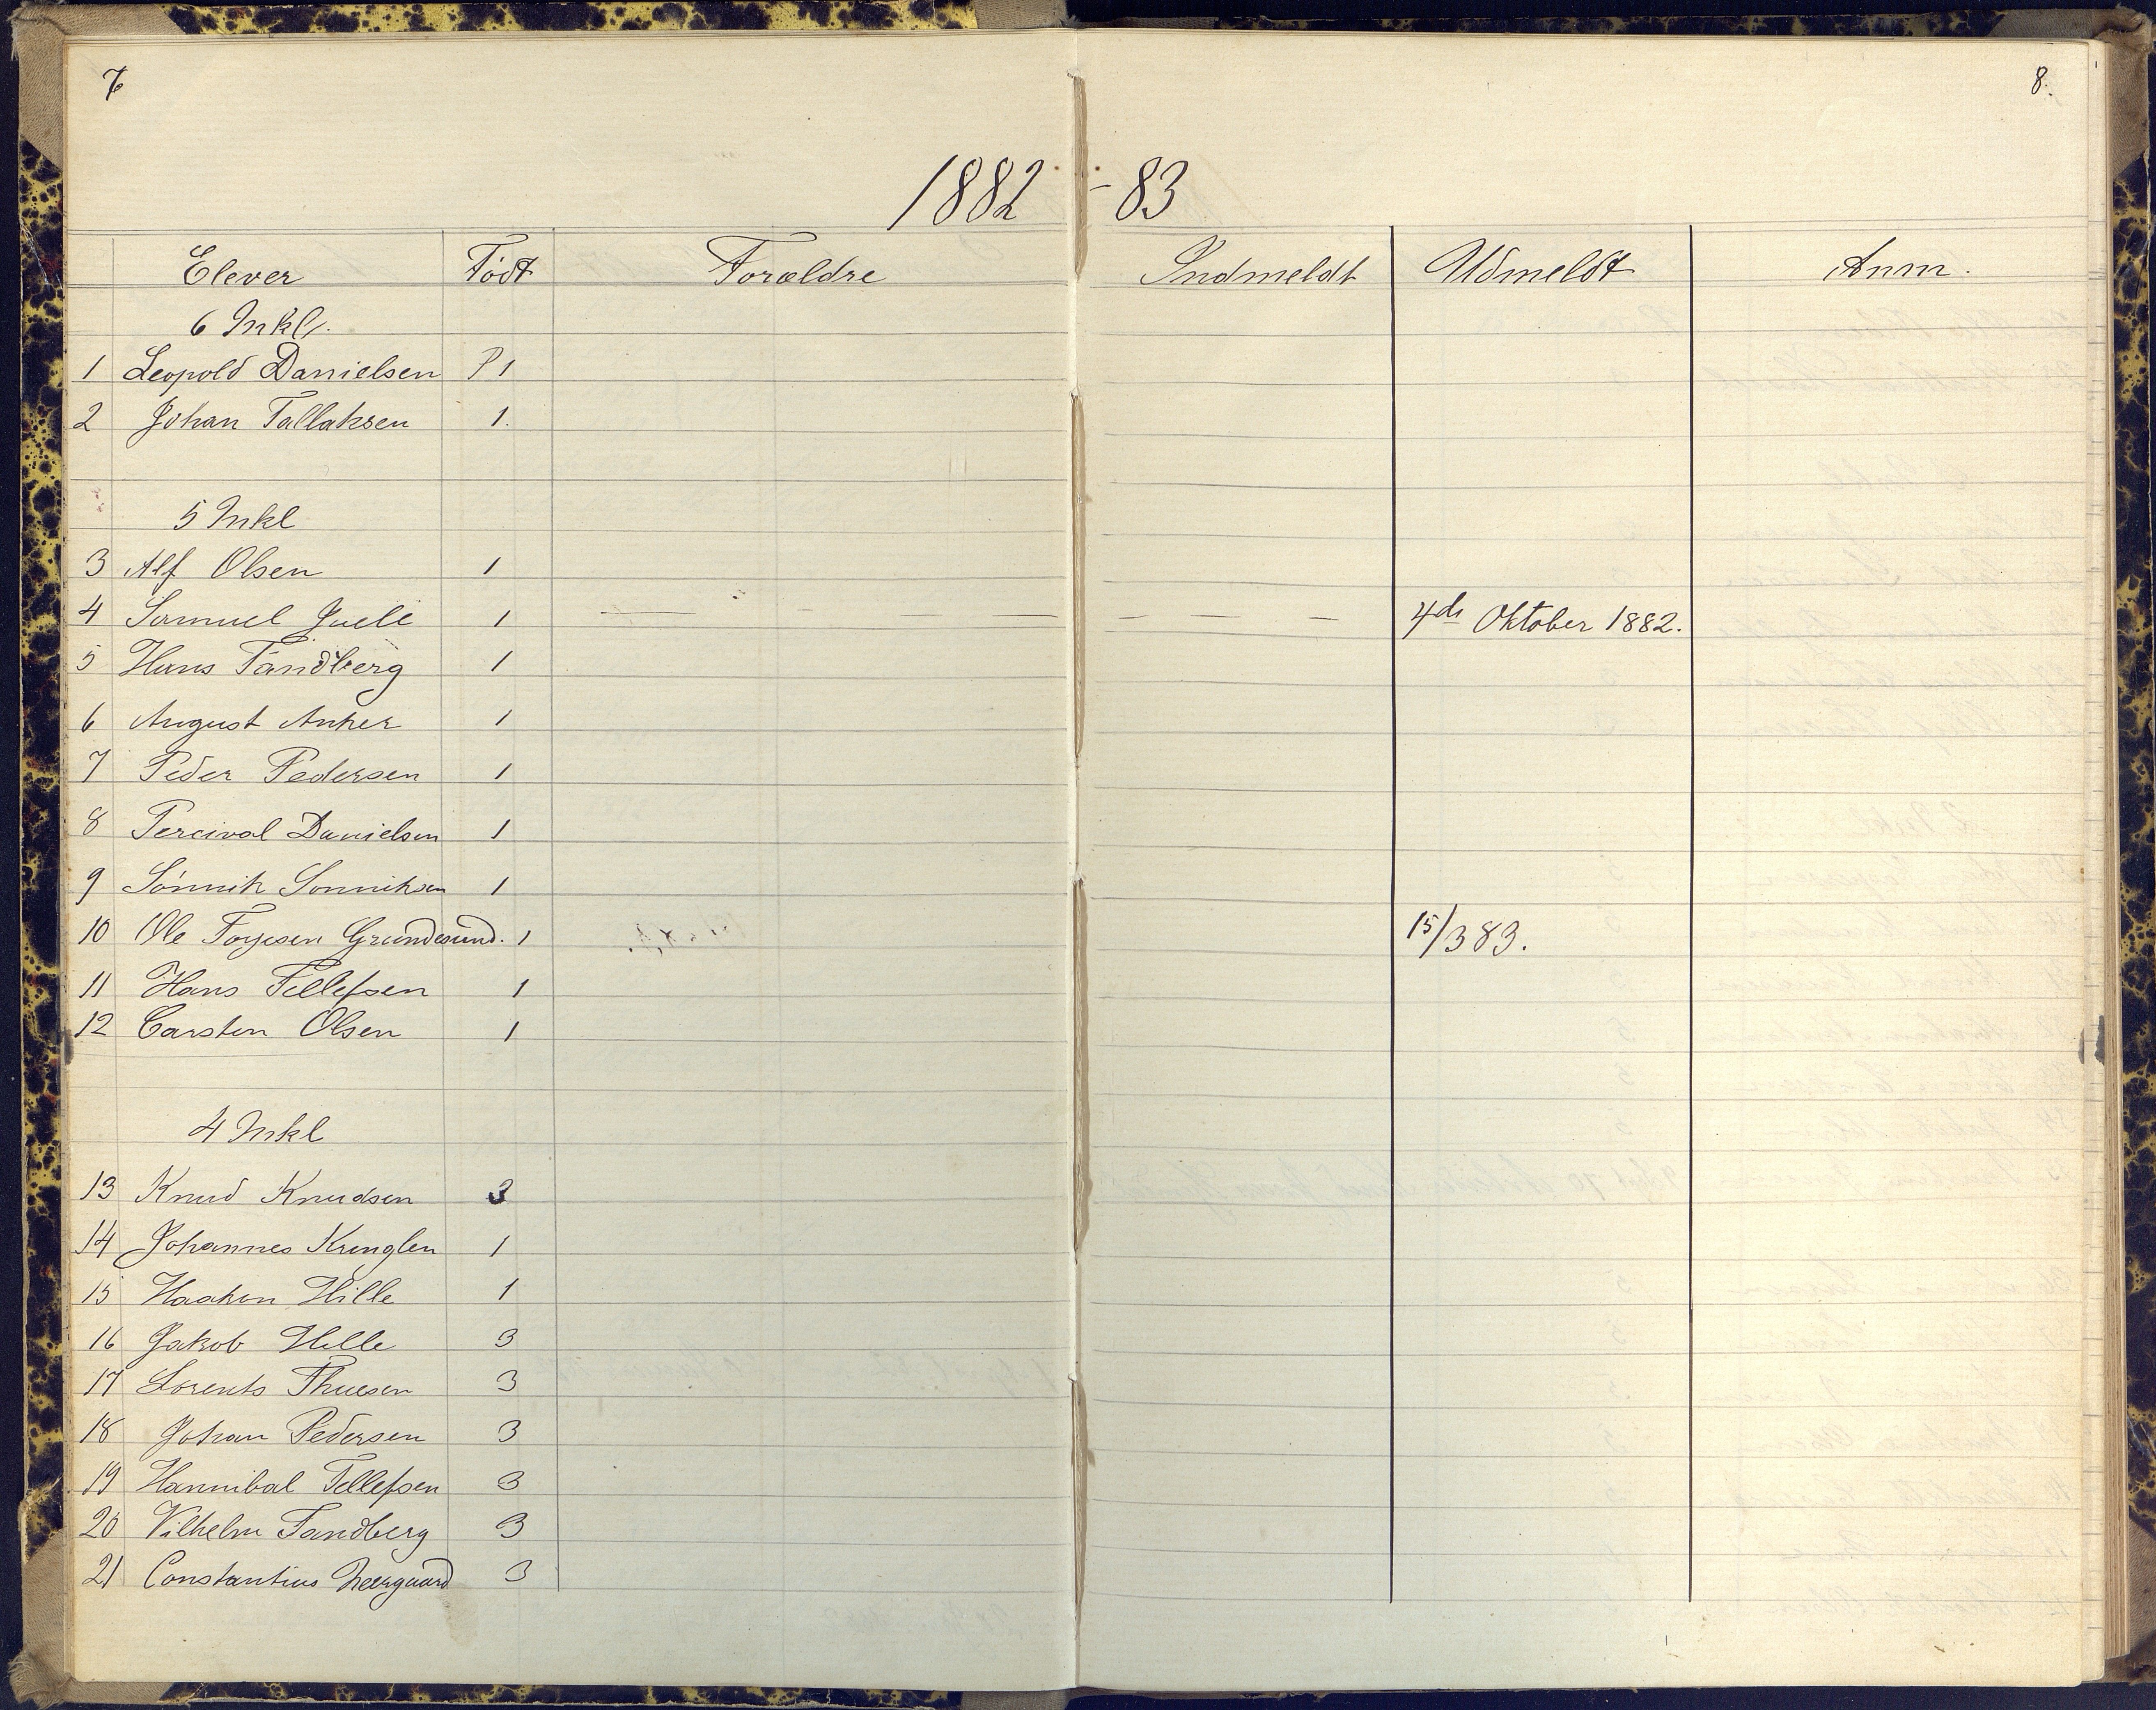 7
8.
1882 - 83
Elever Födt Forældre Indmeldt Udmeldt Anm.
6 Inkl.
1 Leopold Danielsen P 1
2 Johan Tallaksen 1.
5 Inkl
3 Alf Olsen 1
4 Samuel Juell 1 — — — — — — — 4de Oktober 1882.
5 Hans Tandberg 1
6 August Anker 1
7 Peder Pedersen 1
8 Percival Danielsen 1
9 Sönnik Sonniksen 1
10 Ole Grundesund. 1 15/3 83.
11 Hans Tellefsen 1
12 Carsten Olsen 1
4 Inkl
13 Knud Knudsen 3
14 Johannes Kringlen 1
15 Haakon Hille 1
16 Jakob Hille 3
17 Lorents Thuesen 3
18 Johan Pedersen 3
19 Hannibal Tellefsen 3
20 Vilhelm Tandberg 3
21 Constantius Neergaard 3